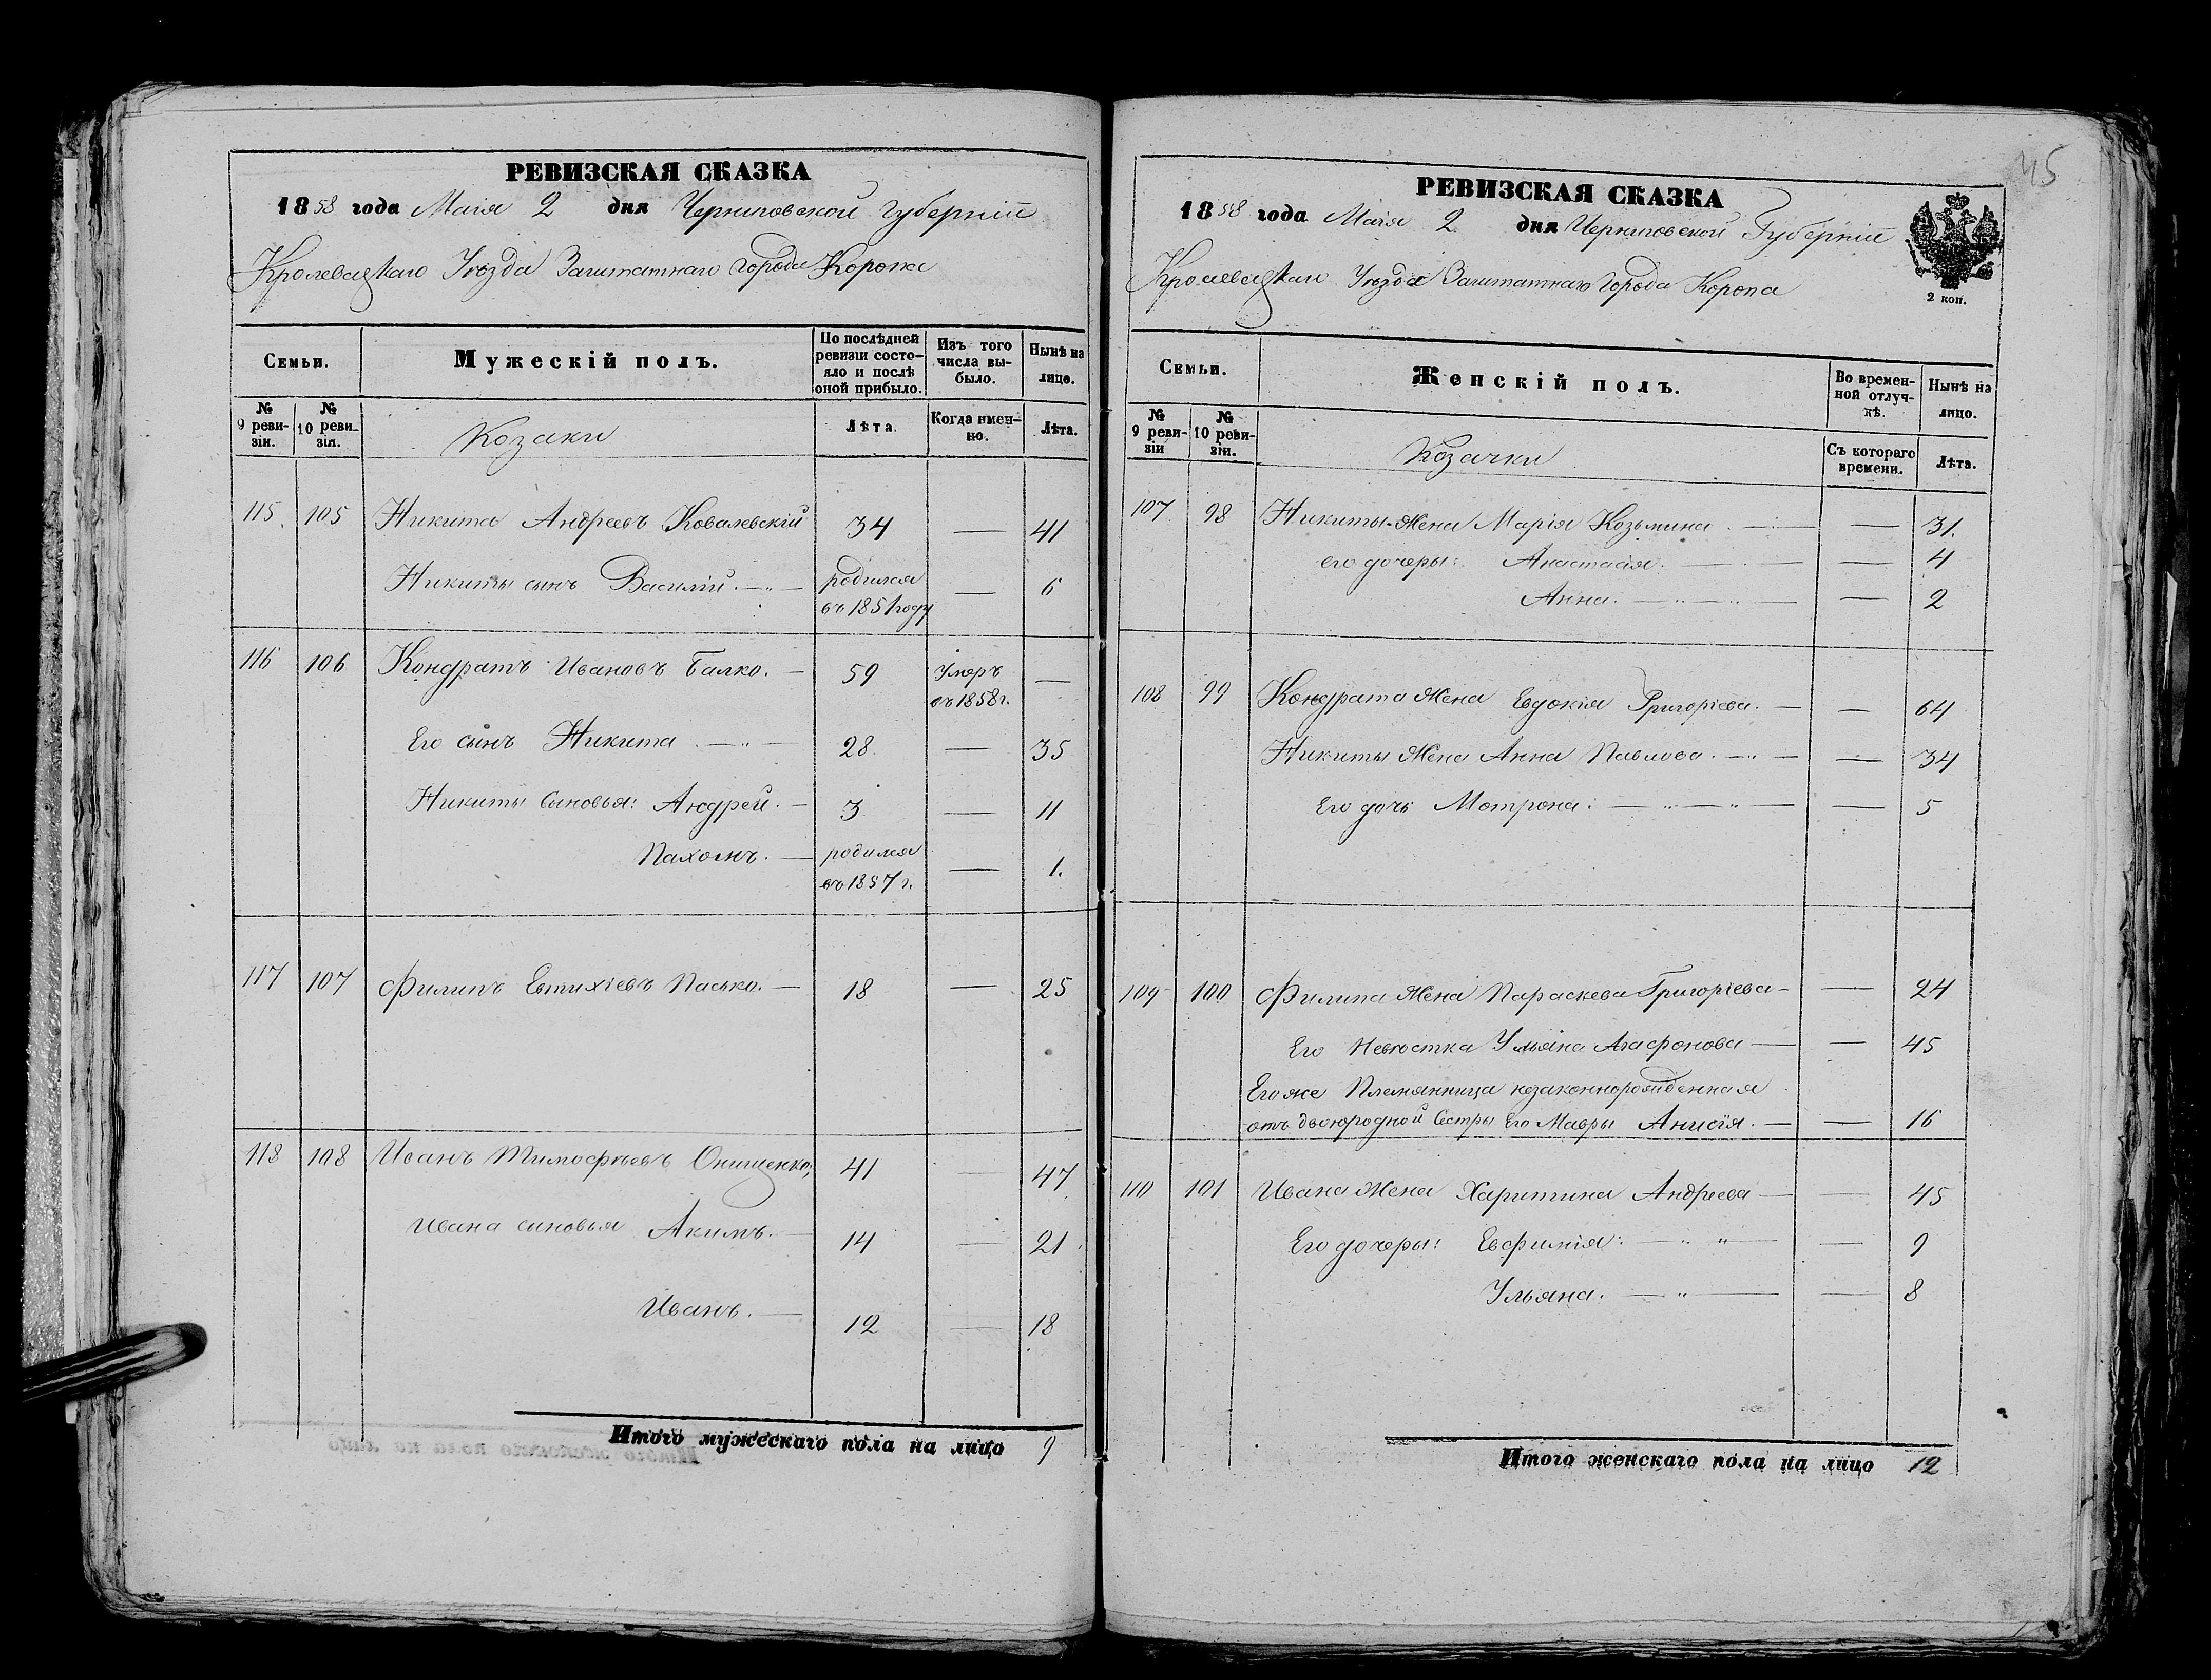 РЕВИЗСКАЯ СКАЗКА
1858 года Маія 2 дня Черниговской Губерніи
Кролевецкаго Уѣзда Заштатнаго города Коропа
Семьи.
Мужескій полъ.
По послѣдней ревизіи состояло и послѣ оной прибыло.
Изъ того числа выбыло.
Нынѣ на лицо.
№ 9 ревизіи.
№ 10 ревизіи.
Козаки
Лѣта.
Когда именно.
Лѣта.
115. 105 Никита Андреевъ Ковалевскій 34 — 41
Никиты сынъ Василій. — родился въ 1851 году — 6
116 106 Кондратъ Ивановъ Балко. — 59 Умеръ въ 1858 г. —
Его сынъ Никита — 28 — 35
Никиты сыновья: Андрей. — 3 — 11
Пахомъ. — родился въ 1857 г. — 1.
117 107 Филипъ Евтихіевъ Пасько. — 18 — 25
118 108 Иванъ Тимофѣевъ Онищенко, 41 — 47
Ивана сыновья Акимъ. — 14 — 21
Иванъ. — 12 — 18
Итого мужескаго пола на лицо 9
45
РЕВИЗСКАЯ СКАЗКА
1858 года Маія 2 дня Черниговской Губерніи
Кролевецкаго Уѣзда Заштатнаго города Коропа
2 коп.
Семьи.
Женскій полъ.
Во временной отлучкѣ.
Нынѣ на лицо.
№ 9 ревизіи
№ 10 ревизіи.
Козачки
Съ котораго времени.
Лѣта.
107 98 Никиты Жена Марія Козьмина — — 31.
его дочеры: Анастасія. — — 4
Анна. — — 2
108 99 Кондрата Жена Евдокія Григоріева. — — 64
Никиты Жена Анна Павлова. — — 34
Его дочь Мотрона: — — 5
109 100 Филипа Жена Параскева Григоріева — — 24
Его Невѣстка Ульяна Агафонова — — 45
Его же Племянница незаконнорожденная
отъ двоюродной Сестры Его Мавры Анисія. — — 16
110 101 Ивана Жена Харитина Андреева — — 45
Его дочеры: Евфимія: — — 9
Ульяна. — — 8
Итого женскаго пола на лицо 12